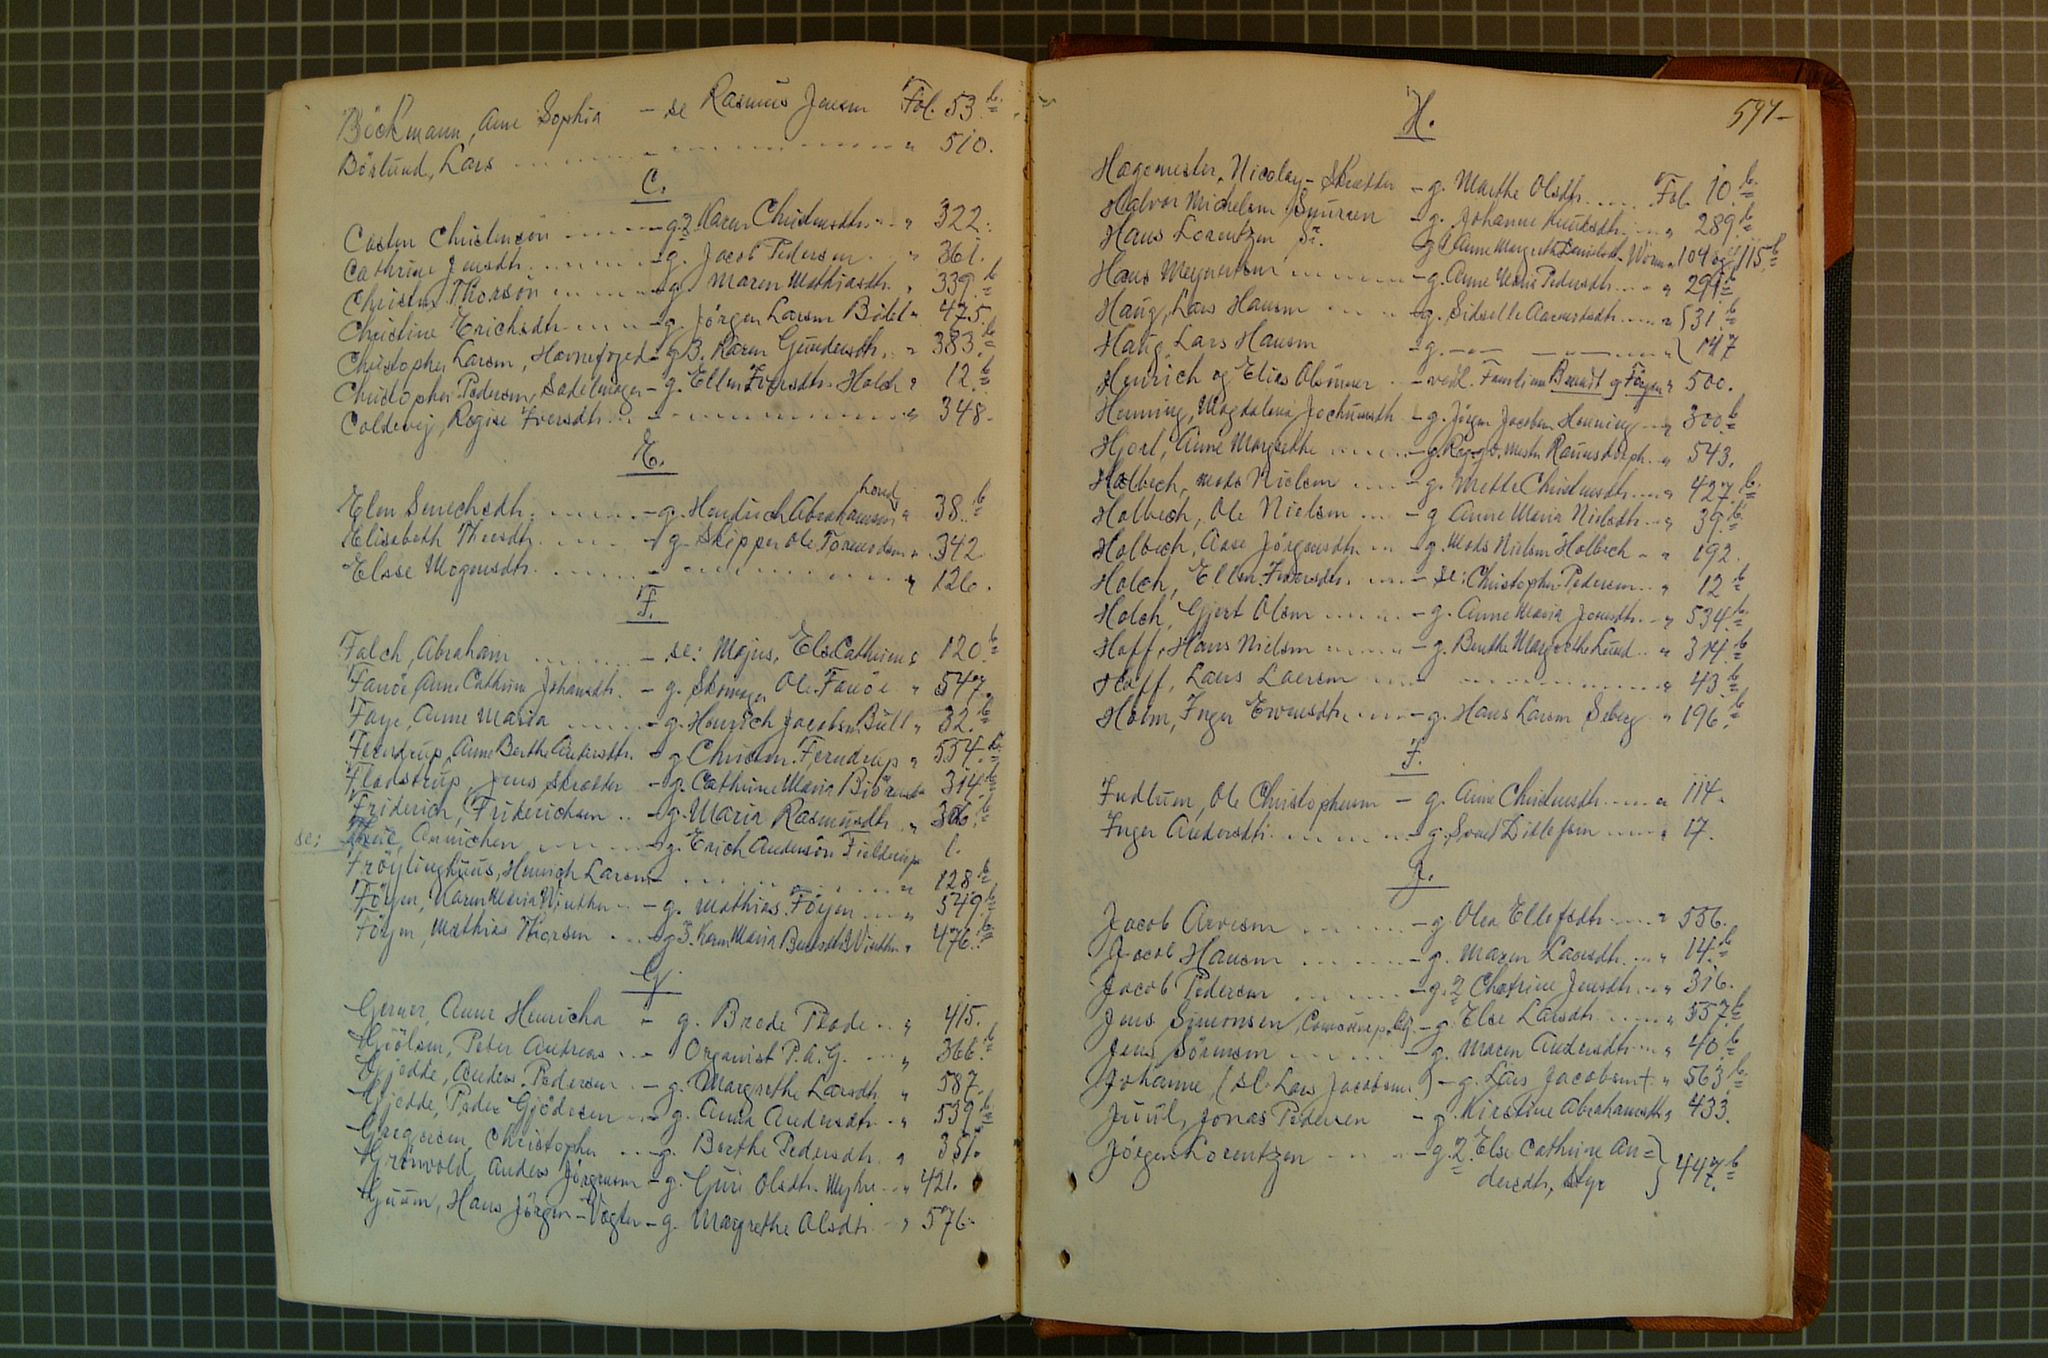 Böckmann, Ane Sophia - se Rasmus Jensen Fol. 53.b
Böslund, Lars " 510.
C.
Casten Christensön - g. 2 Karen Christensdtr. " 322.
Cathrine Jensdtr. - g. Jacob Pedersen " 361.
Christen Thorsön - g. Maren Mathiasdtr. " 339.b
Christine Erichsdtr. - g. Jörgen Larsen Bötel " 475.
Christopher Larsen, Havnefoged - g. 3. Karen Gundersdtr. " 383.b
Christopher Pedersen, Sadelmager - g. Ellen Iversdtr. Holch " 12.b
Coldevij, Regise Iversdtr. " 348.
E.
Elen Senechsdtr. - g. Hendrich Abrahamsen " 38.b
Elisabeth Theisdtr. - g. Skipper Ole Torrersdsen " 342
Elsse Mogensdtr. " 126.
F.
Falch, Abraham - se: Majus, Els Cathrine 120.b
Fanöe, Ane Cathrine Johansdtr. - g. Skomager Ole Fanöe " 547.
Faye, Anne Maria - g. Henrich Jacobsen Bull " 32.b
Ferndrup, Anne Berthe Andersdtr. - g. Christen Ferndrup " 554.b
Fladstrup, Jens Skrædder - g. Cathrine Maria Biörnsdtr. 314.b
Friderich, Friderichsen - g. Maria Rasmusdtr. " 306.b
se: Annichen - g. Erich Andersön Fielderup 1.
Fröylinghuus, Henrich Larsen " 128.b
Föyen, Karen Maria Winther - g. Mathias Föyen " 549.b
Föyen, Mathias Thorsen - g. 3. Karen Maria Winther " 476.b
G.
Gerner, Anne Henricha - g. Brede Plade " 415.
Giölsen, Peter Andreas - Organist P. A. G. " 366.b
Gjedde, Anders Pedersen - g. Margrethe Larsdtr. " 587.
Gjedde, Peder Gjödesen - g. Anna Andersdtr. " 539.b
Gregersen, Christopher - g. Berthe Pedersdtr. " 351.
Grönvold, Anders Jörgensen - g. Guri Olsdtr. Myhre " 421.
Guum, Hans Jörgen - Vægter - g. Margrethe Olsdtr. " 576.
591-
H.
Hagemester, Nicolay - Skrædder - g. Marthe Olsdtr. Fol. 10.b
Halvor Michelsen Snursen - g. Johanne Knudsdtr. " 289.b
Hans Lorentzen, Sr. g. 1 Anne Margreta Worm " 104 og 115.b
Hans Meynertsen - g. Anne Maria Pedersdtr. " 299.b
Haug, Lars Hansen - g. Sidselle Aamundsdtr. " 31.b
Haug, Lars Hansen - g. " 147
Henrich og Elias Olsönner - vedk. Familierne Brandt og Föyen " 500.
Henning, Magdalena Jochumsdtr. - g. Jörgen Jacobsen Henning " 300.b
Hjort, Anne Margrethe - g. Reg.qv.mestr. Raunsdorph " 543.
Holbech, Mads Nielsen - g. Mette Christensdtr. " 427.b
Holbech, Ole Nielsen - g. Anne Maria Nielsdtr. " 39.b
Holbech, Aase Jörgensdtr. - g. Mads Nielsen Holbech " 192.
Holch, Ellen Iversdtr. - se: Christopher Pedersen " 12.b
Holch, Gjert Olsen - g. Anne Maria Jensdtr. " 534.b
Hoff, Hans Nielsen - g. Benthe Margrethe Lund " 314.b
Hoff, Lars Larsen " 43.b
Holm, Inger Evensdtr. - g. Hans Larsen Seberg " 196.b
I.
Indlum, Ole Christophersen - g. Anne Christensdtr. " 114.
Inger Andersdtr. - g. Svend Ditlefsen " 17.
J.
Jacob Arvesen - g. Olea Ellefsdtr. " 556.
Jacob Hansen - g. Maren Larsdtr. " 14.b
Jacob Pedersen - g. 2 Chatrine Jensdtr. " 316.
Jens Simonsen, - g. Else Larsdtr. " 557.b
Jens Sörensen - g. Maren Andersdtr. " 40.b
Johanne (Sl. Lars Jacobsens) - g. Lars Jacobsen † " 563.b
Juul, Jonas Pedersen - g. Kirstine Abrahamsdtr. " 433.
Jörgen Lorentzen - g. 2. Else Cathrine An=
dersdtr. Styr } 447.b